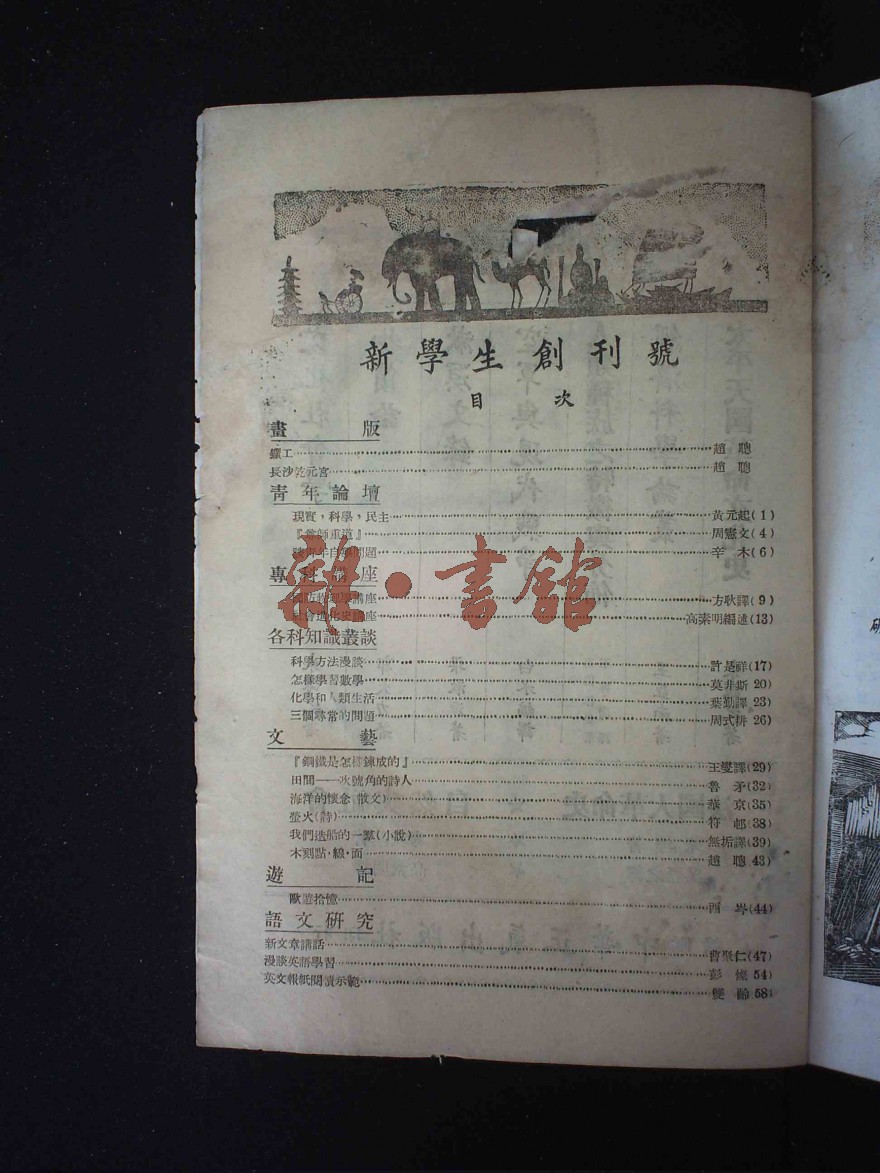 新學生創刊號
目次
畫版
鑛工 趙聰
長沙乾元宮 趙聰
靑年論壇
現實,科學,民主 黃元起(1)
『尊師重道』 周憲文(4)
青年自 問題 辛木(6)
專科講座
國防物理學講座 方耿譯(9)
社會進化史講座 高素明編述(13)
各科知識叢談
科學方法漫談 許是祥(17)
怎樣學習數學 莫非斯 20)
化學和人類生活 葉勤譯(23)
三個尋常的問題 周式 26)
文藝
『鋼鐵是怎樣鍊成的』 王燮譯(29)
田間——次號角的詩人 魯矛(32)
海洋的懷念 散文) 華京(35)
螢火(詩) 符 38)
我們造船的一羣(小說) 無垢譯(39)
木刻點·線·面 趙聰 43)
遊記
歐遊拾憶 西岑(44)
語文研究
新文章講話 曹聚仁(47)
漫談英語學習 彭 54)
英文報紙閱讀示範 雙齡 58)
雜·書館